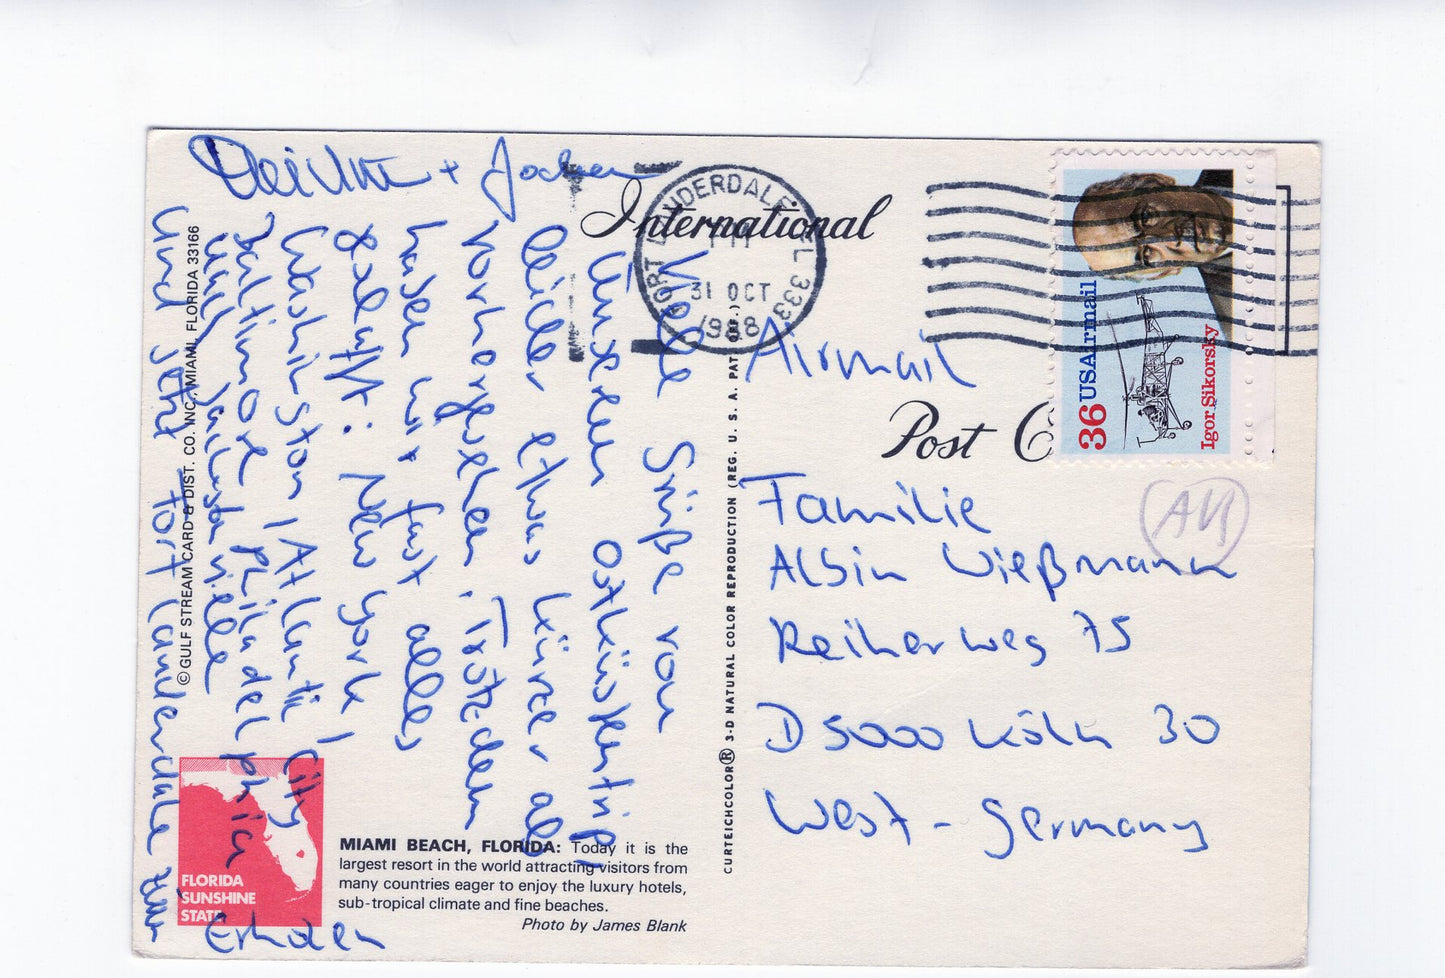 Viele Grüße von
Unserem Ostküstentrip!
Leider etwas kürzer als
vorhergesehen. Trotzdem
haben wir fast alles
geschafft: New York!
Washington! Atlantic City
Baltimore Philadelphia
und Jacksonville
Und jetzt Fort Lauderdale zum
Erholen
+ Jochen
© GULF STREAM CARD & DIST. CO. INC., MIAMI, FLORIDA 33166
FLORIDA
SUNSHINE
STATE
MIAMI BEACH, FLORIDA: Today it is the
largest resort in the world attracting visitors from
many countries eager to enjoy the luxury hotels,
sub-tropical climate and fine beaches.
Photo by James Blank
CURTEICHCOLOR® 3-D NATURAL COLOR REPRODUCTION (REG. U. S. A. PAT. OFF.)
International
Post C
FORT LAUDERDALE FL 333
PM
31 OCT
1988
36 USAirmail
Igor Sikorsky
Airmail
Familie
Albin Wießmann
Reiherweg 75
D 5000 Köln 30
West-Germany